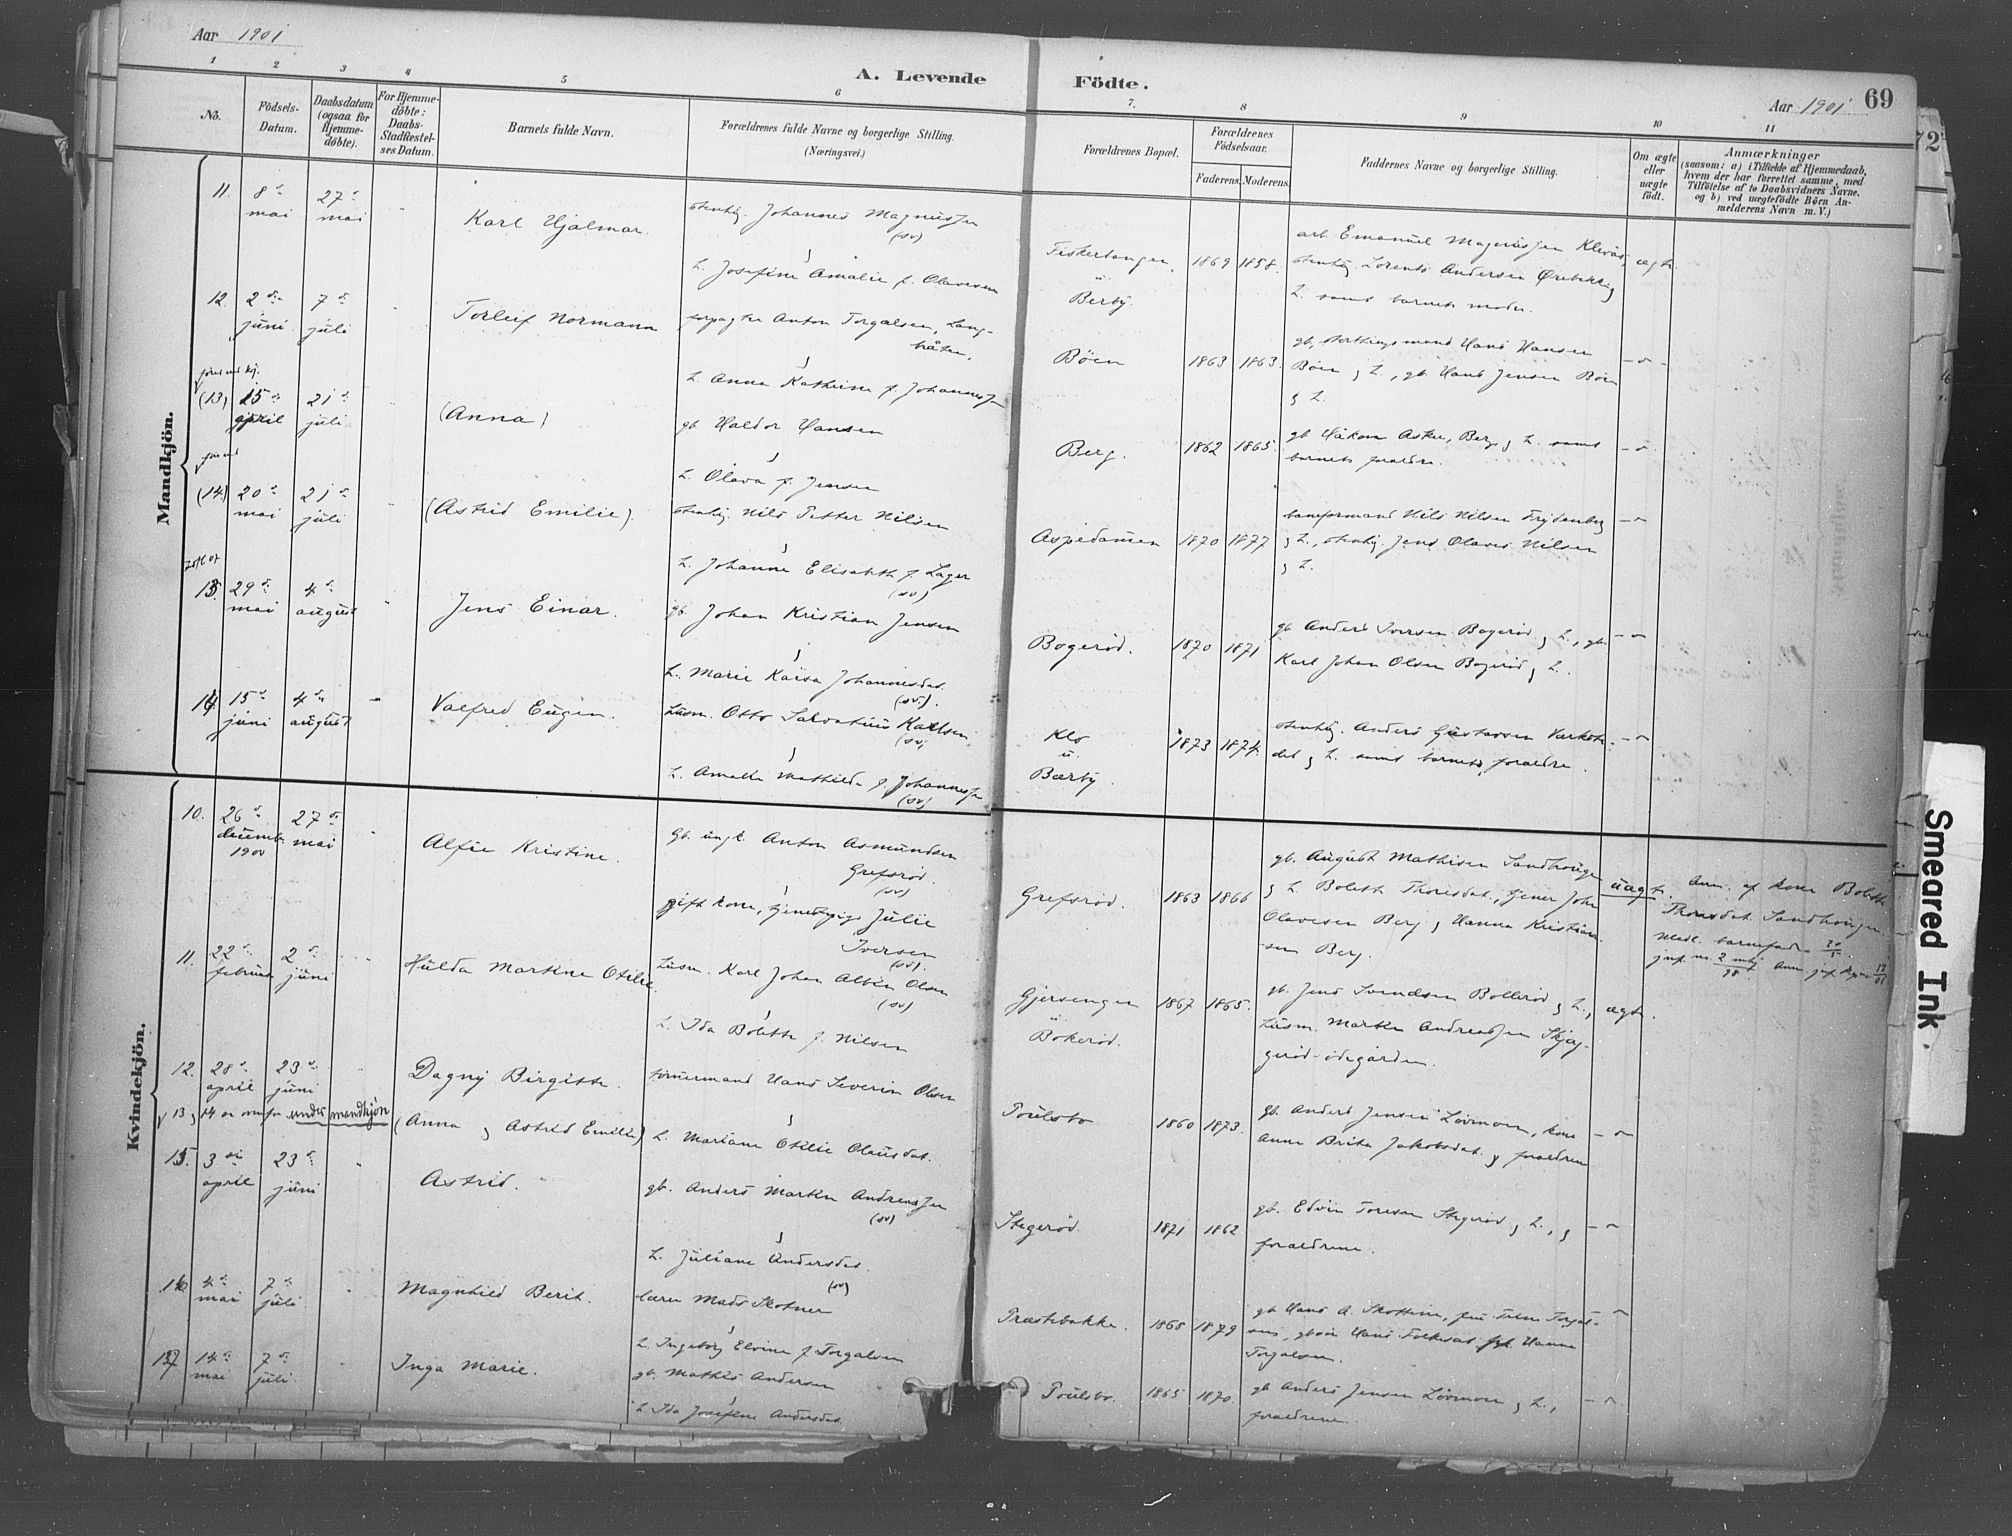 Aar 1901
A. Levende Födte.
Aar 1901
69
72
1 2 3 4 5 6 7. 8 9 10 11
No.
Födsels-Datum.
Daabsdatum (ogsaa for Hjemme-döbte).
For Hjemme-döbte: Daabs-Stadfæstel-ses Datum.
Barnets fulde Navn.
Forældrenes fulde Navne og borgerlige Stilling.
(Næringsvei.)
Forældrenes Bopæl.
Forældrenes Födselsaar.
Faderens. Moderens.
Faddernes Navne og borgerlige Stilling.
Om ægte eller uægte födt.
Anmærkninger
(saasom: a) i Tilfælde af Hjemmedaab,
hvem der har forrettet samme, med
Tilföielse af to Daabsvidners Navne.
og b) ved uægtefödte Börn An-
melderens Navn m. V.)
Mandkjön.
11. 8de mai 27de mai - Karl Hjalmar.
stenhg. Johannes Magnussen (sv)
&
h. Josefine Amalie f. Olavesen
Fisketangen, ö Berby.
1869 1858.
arb. Emanuel Magnussen Kleväs,
stenhg. Lorents Andersen Ørebekk &
h. samt barnets moder.
ægte.
12. 2den juni 7de juli - Torleif Normann
forpagter Anton Torgalsen, Lang-
bråten.
&
h. Anna Kathrine f. Johannessen
Böen
1863 1863.
gb, storthingsmand Hans Hansen
Böen & h., gb. Hans Jensen Böen
& h.
- " -
(13) 15de april 21de juli (Anna)
gb. Haldor Hansen
&
h. Olava f. Jensen
Berg.
1862 1865.
gb Håkon Asker, Berg & h. samt
barnets foraldre.
- " -
(14) 20de mai 21de juli - (Astrid Emilie).
stenhg Nils Petter Nilsen
&
h. Johanne Elisabeth f. Lager (sv)
Aspedammen
1870 1877
baneformand Nils Nilsen
& h., stenhg. Jens Olaves Nilsen
& h.
- " -
13. 29de mai 4de august - Jens Einar.
gb. Johan Kristian Jensen
&
h. Marie Kaisa Johannesdat. (sv).
Bogeröd.
1870 1871
gb Anders Iversen Bogeröd & h., gb.
Karl Johan Olsen Bogeröd & h..
- " -
14. 15de juni 4de august - Valfred Eugen.
husm. Otto Salvatius Karlsen (sv)
&
h. Amalia Mathilda f. Johannessen (sv)
Klo u. Bærby
1873 1874.
stenhg. Anders Gustavsen
& h. samt barnets foraldre.
- " -
Kvindekjön.
10. 26de decemb. 1900 27de mai - Alfie Kristine.
Gb. ungk. Anton Asmundsen
Grefsröd. (sv)
&
gift kone, tjenestepige Julie
Iversen (sv).
Grefsröd.
1863 1866
gb. August Mathisen Sandhougen
& h. Bolette Thoresdat., tjener John
Olavesen Berg & Hanna Kristian-
sen Berg.
uægte.
Anm. af kone Bolette
Thoresdat. Sandhougen.
11. 22de februar 2den juni - Hulda Markne Otilie.
husm. Karl Johan Albin Olsen (sv)
&
h. Ida Bolette f. Nilsen
Gjersengen Bökeröd.
1867 1865.
gb. Jens Svendsen Bolleröd & h.,
husm. Markus Andreassen Skjeg-
geröd-ödegården.
ægte.
12. 28de april 23de juni - Dagny Birgitte.
tömmermand Hans Severin Olsen
&
h. Mariane Otilie Olausdat.
Poulsbo
1860 1873.
gb. Anders Jensen Lövmoen, kone
Anne Brita Jakobsdat. & foraldrene
- " -
13 & 14 er ovenfor under mandkjön (Anna & Astrid Emilie)
15. 3die april 23de juni - Astrid.
gb. Anders Martin Andreassen (sv)
&
h. Juliane Andersdat. (sv)
Stegeröd.
1871 1862
gb. Edvin Toresen Stegeröd & h., &
foraldrene.
- " -
16 4de mai 7de juli - Magnhild Berit.
lærer Mads Skotner
&
h. Ingeborg Elvine f. Torgalsen
Præstebakke.
1868 1879
gb Hans A. Skottene,
Torgalsen.
- " -
17 14de mai 7de juli - Inga Marie.
gb. Mathis Andersen
&
h. Ida Josefine Andersdat.
Poulsbo.
1865 1870.
gb Anders Jensen Lövmoen & h.,
foraldrene.
- " -
Smeared Ink